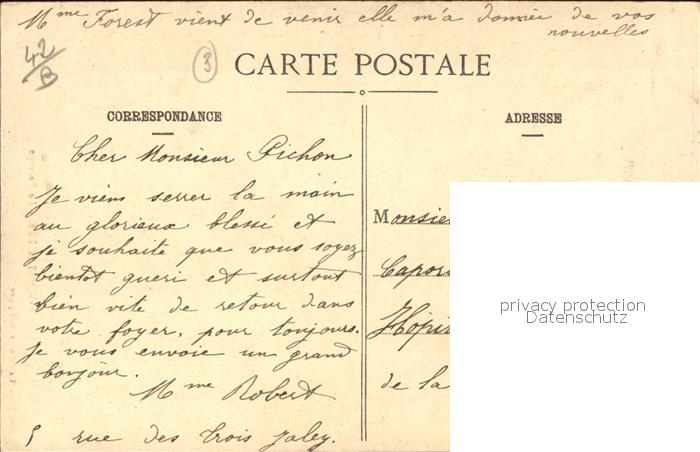 Mme Forest vient de venir elle m'a donnée de vos
nouvelles
42/B
3
CARTE POSTALE
CORRESPONDANCE
ADRESSE
Cher Monsieur Pichon
Je viens serrer la main
au glorieux blessé et
je souhaite que vous soyez
bientot gueri et surtout
bien vite de retour dans
votre foyer, pour toujours.
Je vous envoie un grand
bonjour.
Mme Robert
5 rue des trois
Monsie
Capor
Hôpi
de la
privacy protection
Datenschutz